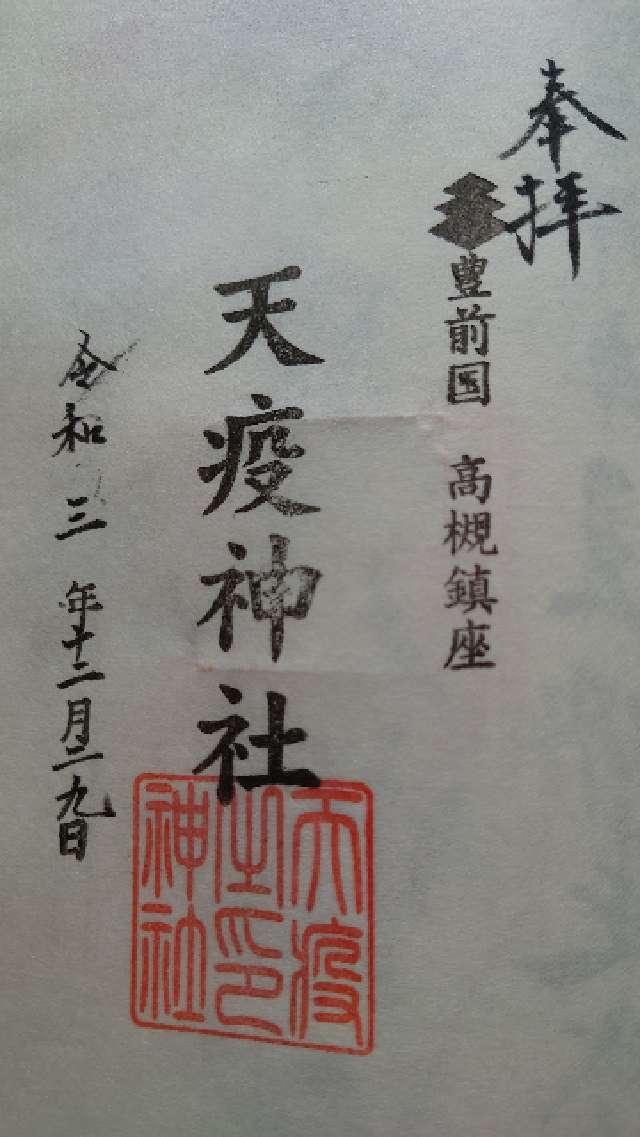 奉拝
豊前国 高槻鎮座
天疫神社
令和三年十二月二九日
天疫
之印
神社